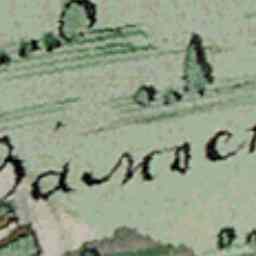 Замост